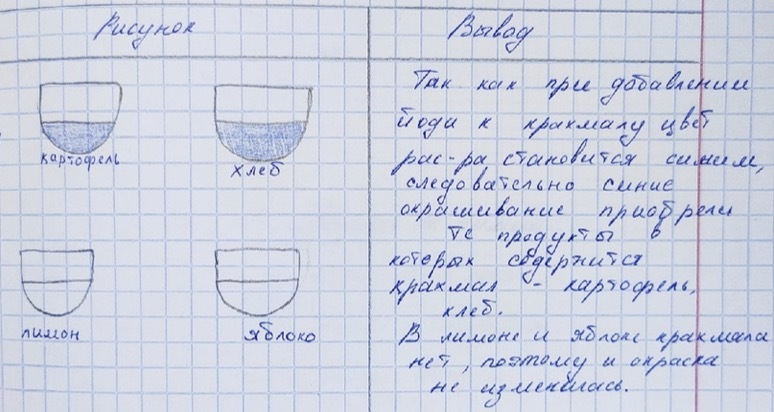 Рисунок
Вывод
картофель
хлеб
лимон
яблоко
Так как при добавлении
йода к крахмалу цвет
рас-ра становится синим,
следовательно синие
окрашивание приобрели
те продукты в
которых содержится
крахмал - картофель,
хлеб.
В лимоне и яблоке крахмала
нет, поэтому и окраска
не изменилась.